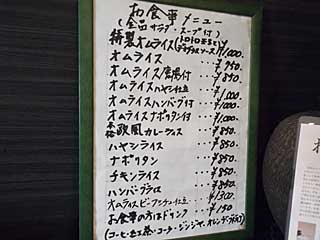 お食事メニュー
(全品サラダ・スープ付)
特製オムライス(トロトロ玉子とデミグラスソース)¥1000-
オムライス ・・・¥950-
オムライス/雪陽付 ・・・¥850-
オムライスハヤシ仕立 ・・・¥1000-
オムライスハンバーグ付 ・・・¥1000-
オムライスナポリタン付 ・・・¥1000-
欧風カレーライス ・・・¥850-
ハヤシライス ・・・¥850-
ナポリタン ・・・¥850-
チキンライス ・・・¥850-
ハンバーグ ・・・¥850-
オムライスビーフシチュー仕立 ・・・¥1300-
お食事の方はドリンク ・・・¥150
(コーヒー・紅茶・コーラ・ジンジャー・オレンジ